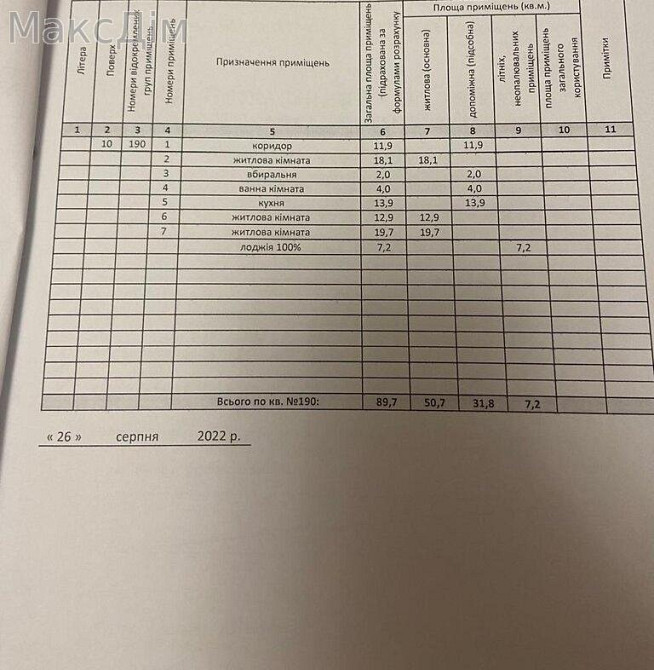 МаксДім
Площа приміщень (кв.м.)
Літера
Поверх
Номери відокремлених груп приміщень
Номери приміщень
Призначення приміщень
Загальна площа приміщень (підрахована за формулами розрахунку
житлова (основна)
допоміжна (підсобна)
літніх, неопалювальних приміщень
площа приміщень загального користування
Примітки
1 2 3 4 5 6 7 8 9 10 11
10 190 1 коридор 11,9 11,9
2 житлова кімната 18,1 18,1
3 вбиральня 2,0 2,0
4 ванна кімната 4,0 4,0
5 кухня 13,9 13,9
6 житлова кімната 12,9 12,9
7 житлова кімната 19,7 19,7
лоджія 100% 7,2 7,2
Всього по кв. №190: 89,7 50,7 31,8 7,2
« 26 » серпня 2022 р.